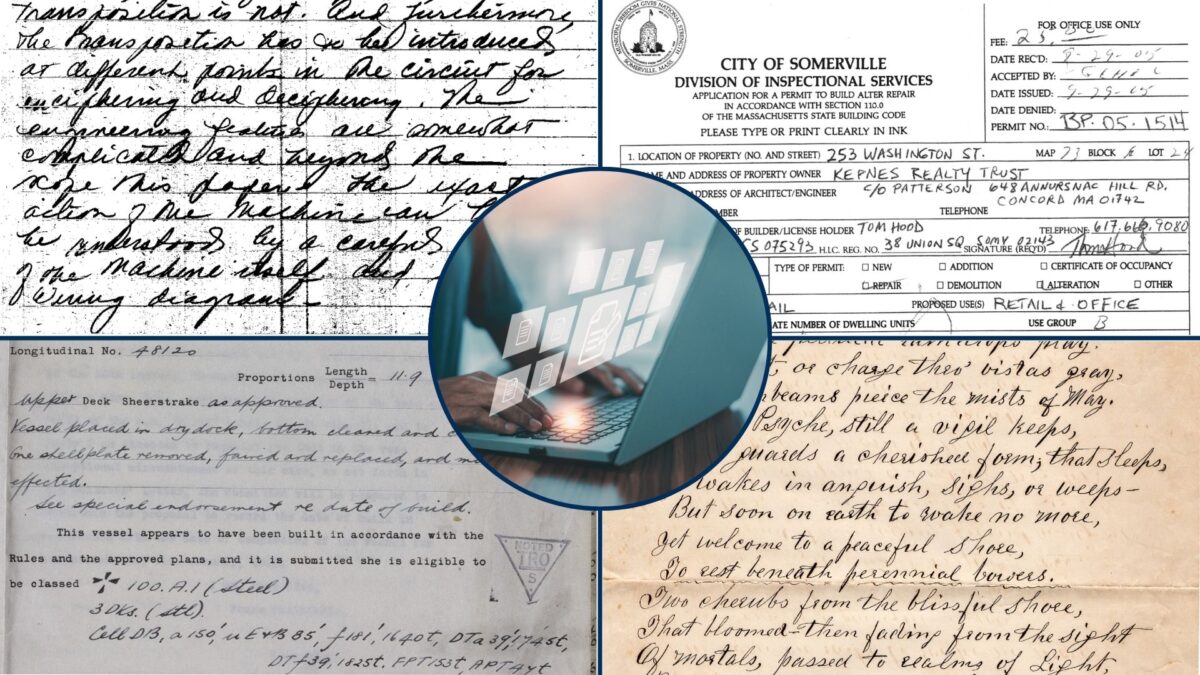 transposition is not. And furthermore
the transposition has to be introduced
at different points in the circuit for
enciphering and deciphering. The
engineering features are somewhat
complicated and beyond the
scope this paper. The exact
action of the machine can
be understood by a careful
of the machine itself and
wiring diagrams
MUNICIPAL FREEDOM GIVES NATIONAL STRENGTH
SOMERVILLE, MASS
CITY OF SOMERVILLE
DIVISION OF INSPECTIONAL SERVICES
APPLICATION FOR A PERMIT TO BUILD ALTER REPAIR
IN ACCORDANCE WITH SECTION 110.0
OF THE MASSACHUSETTS STATE BUILDING CODE
PLEASE TYPE OR PRINT CLEARLY IN INK
FOR OFFICE USE ONLY
FEE: 25.
DATE REC'D: 9-29-05
ACCEPTED BY:
DATE ISSUED: 9-29-05
DATE DENIED:
PERMIT NO.: BP-05-1514
1. LOCATION OF PROPERTY (NO. AND STREET) 253 WASHINGTON ST. MAP 73 BLOCK LOT 24
NAME AND ADDRESS OF PROPERTY OWNER KEPNES REALTY TRUST
ADDRESS OF ARCHITECT/ENGINEER C/O PATTERSON 648 ANNURSNAC HILL RD.
MBER TELEPHONE CONCORD MA 01742
OF BUILDER/LICENSE HOLDER TOM HOOD TELEPHONE 617.666.9080
CS 075293 H.I.C. REG. NO. 38 UNION SQ. SOMV 02143 SIGNATURE (REQ'D) Tom Hood
TYPE OF PERMIT: NEW ADDITION CERTIFICATE OF OCCUPANCY
REPAIR DEMOLITION ALTERATION OTHER
AIL PROPOSED USE(S) RETAIL & OFFICE
ATE NUMBER OF DWELLING UNITS USE GROUP B
Longitudinal No. 48120
Proportions Length Depth = 11.9
Upper Deck Sheerstrake as approved.
Vessel placed in drydock, bottom cleaned and
one shellplate removed, faired and replaced, and
effected.
See special endorsement re date of build.
This vessel appears to have been built in accordance with the
Rules and the approved plans, and it is submitted she is eligible to
be classed 100.A.1 (Steel)
3 Dks. (Stl.)
Cell DB, a 150', u E+B 85', f 181', 1640t, DTa 39', 1745t,
DTf 39', 1825t. FPT 153t, APT 4yt
NOTED
TRO
S
or charge thro' vistas gray,
beams pierce the mists of May.
Psyche, still a vigil keeps,
guards a cherished form, that sleeps,
wakes in anguish, sighs, or weeps—
But soon on earth to wake no more,
Yet welcome to a peaceful shore,
To rest beneath perennial bowers.
Two cherubs from the blissful shore,
That bloomed—then fading from the sight
Of mortals, passed to realms of Light,